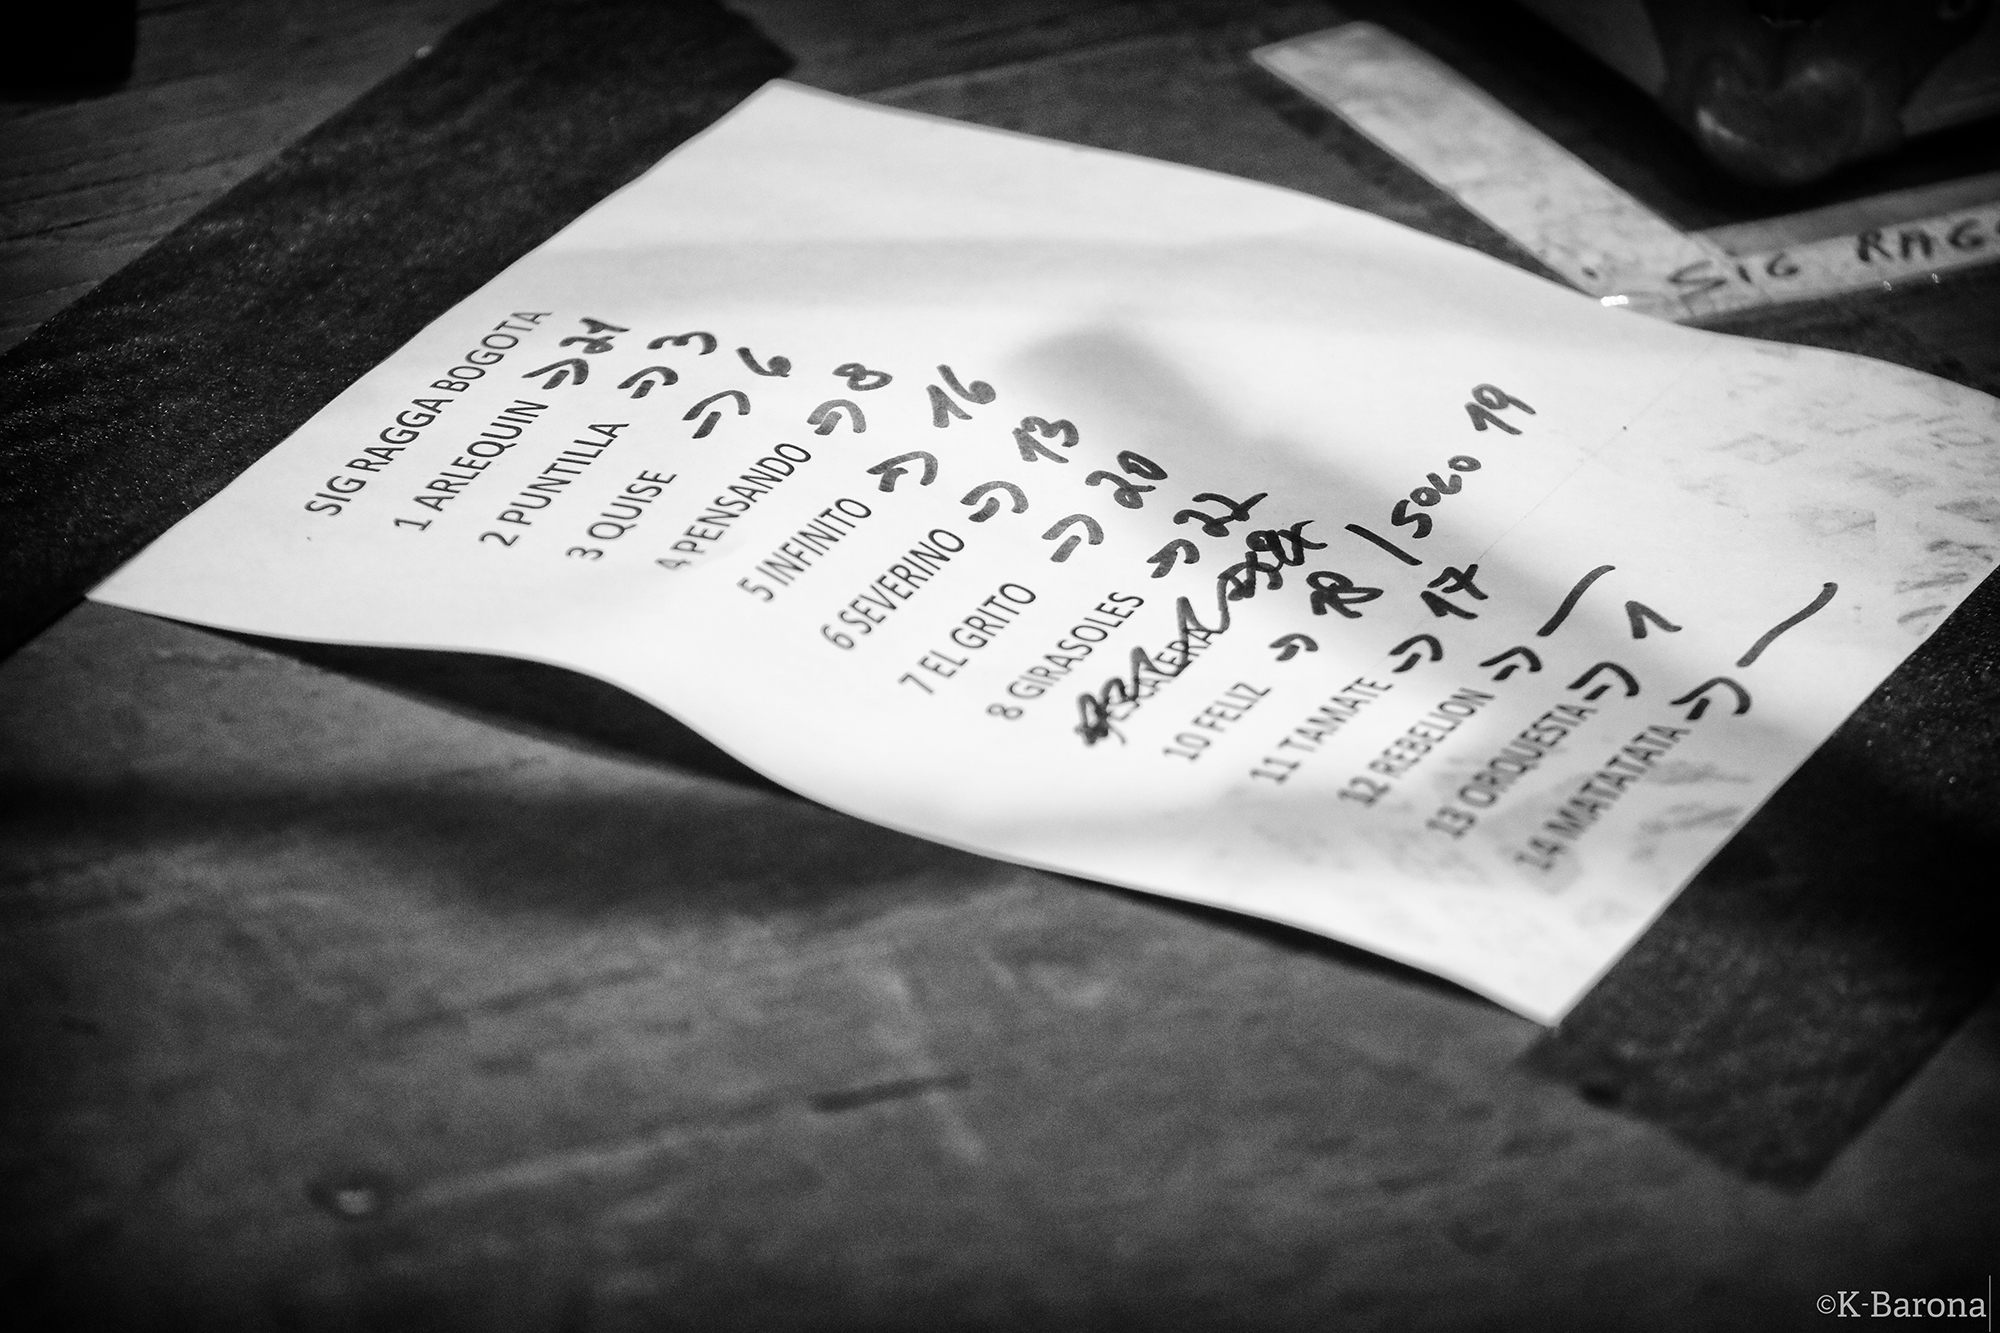 SIG RAGGA BOGOTA
1 ARLEQUIN => 21
2 PUNTILLA => 3
3 QUISE => 6
4 PENSANDO => 8
5 INFINITO => 16
6 SEVERINO => 13
7 EL GRITO => 20
8 GIRASOLES => 22
10 FELIZ => 18 / SOLO 19
11 TAMATE => 17
12 REBELION => —
13 ORQUESTA => 1
14 MATATATA => —
SIG RAGG
©K-Barona